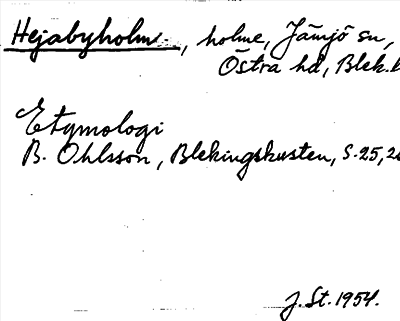 Hejabyholm, holme, Jämjö sn,
Östra hd, Blek.l
Etymologi
B. Ohlsson, Blekingskusten, S. 25, 26
J. St. 1954.